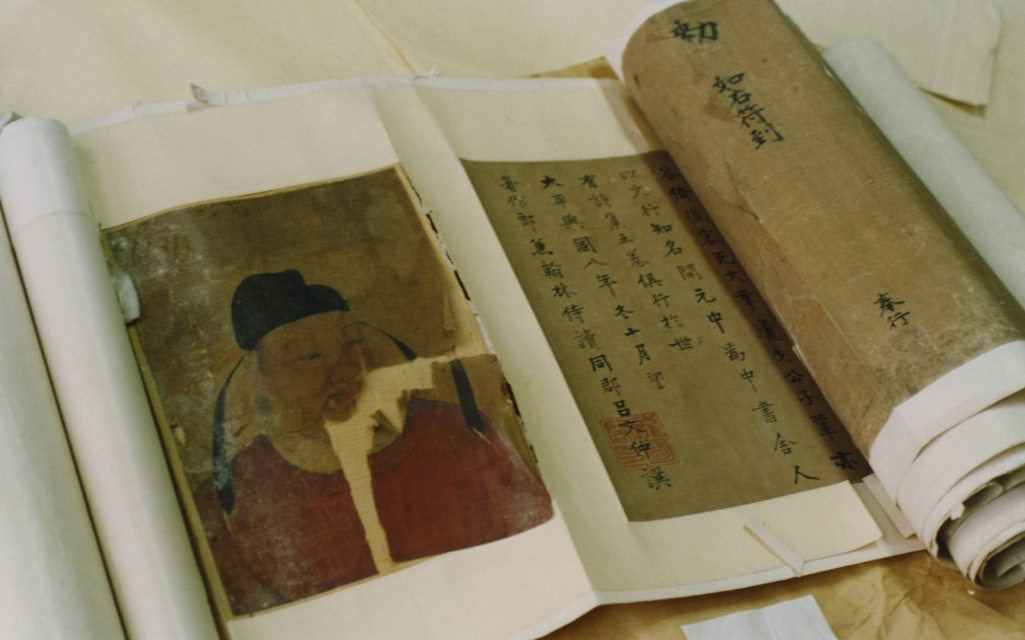 勅
如右符到
奉行
文章
公子
以文行知名開元中為中書舍人
有詩集五卷俱行於世
太平興國八年冬十月望
著作郎兼翰林侍讀同郡呂文仲譔